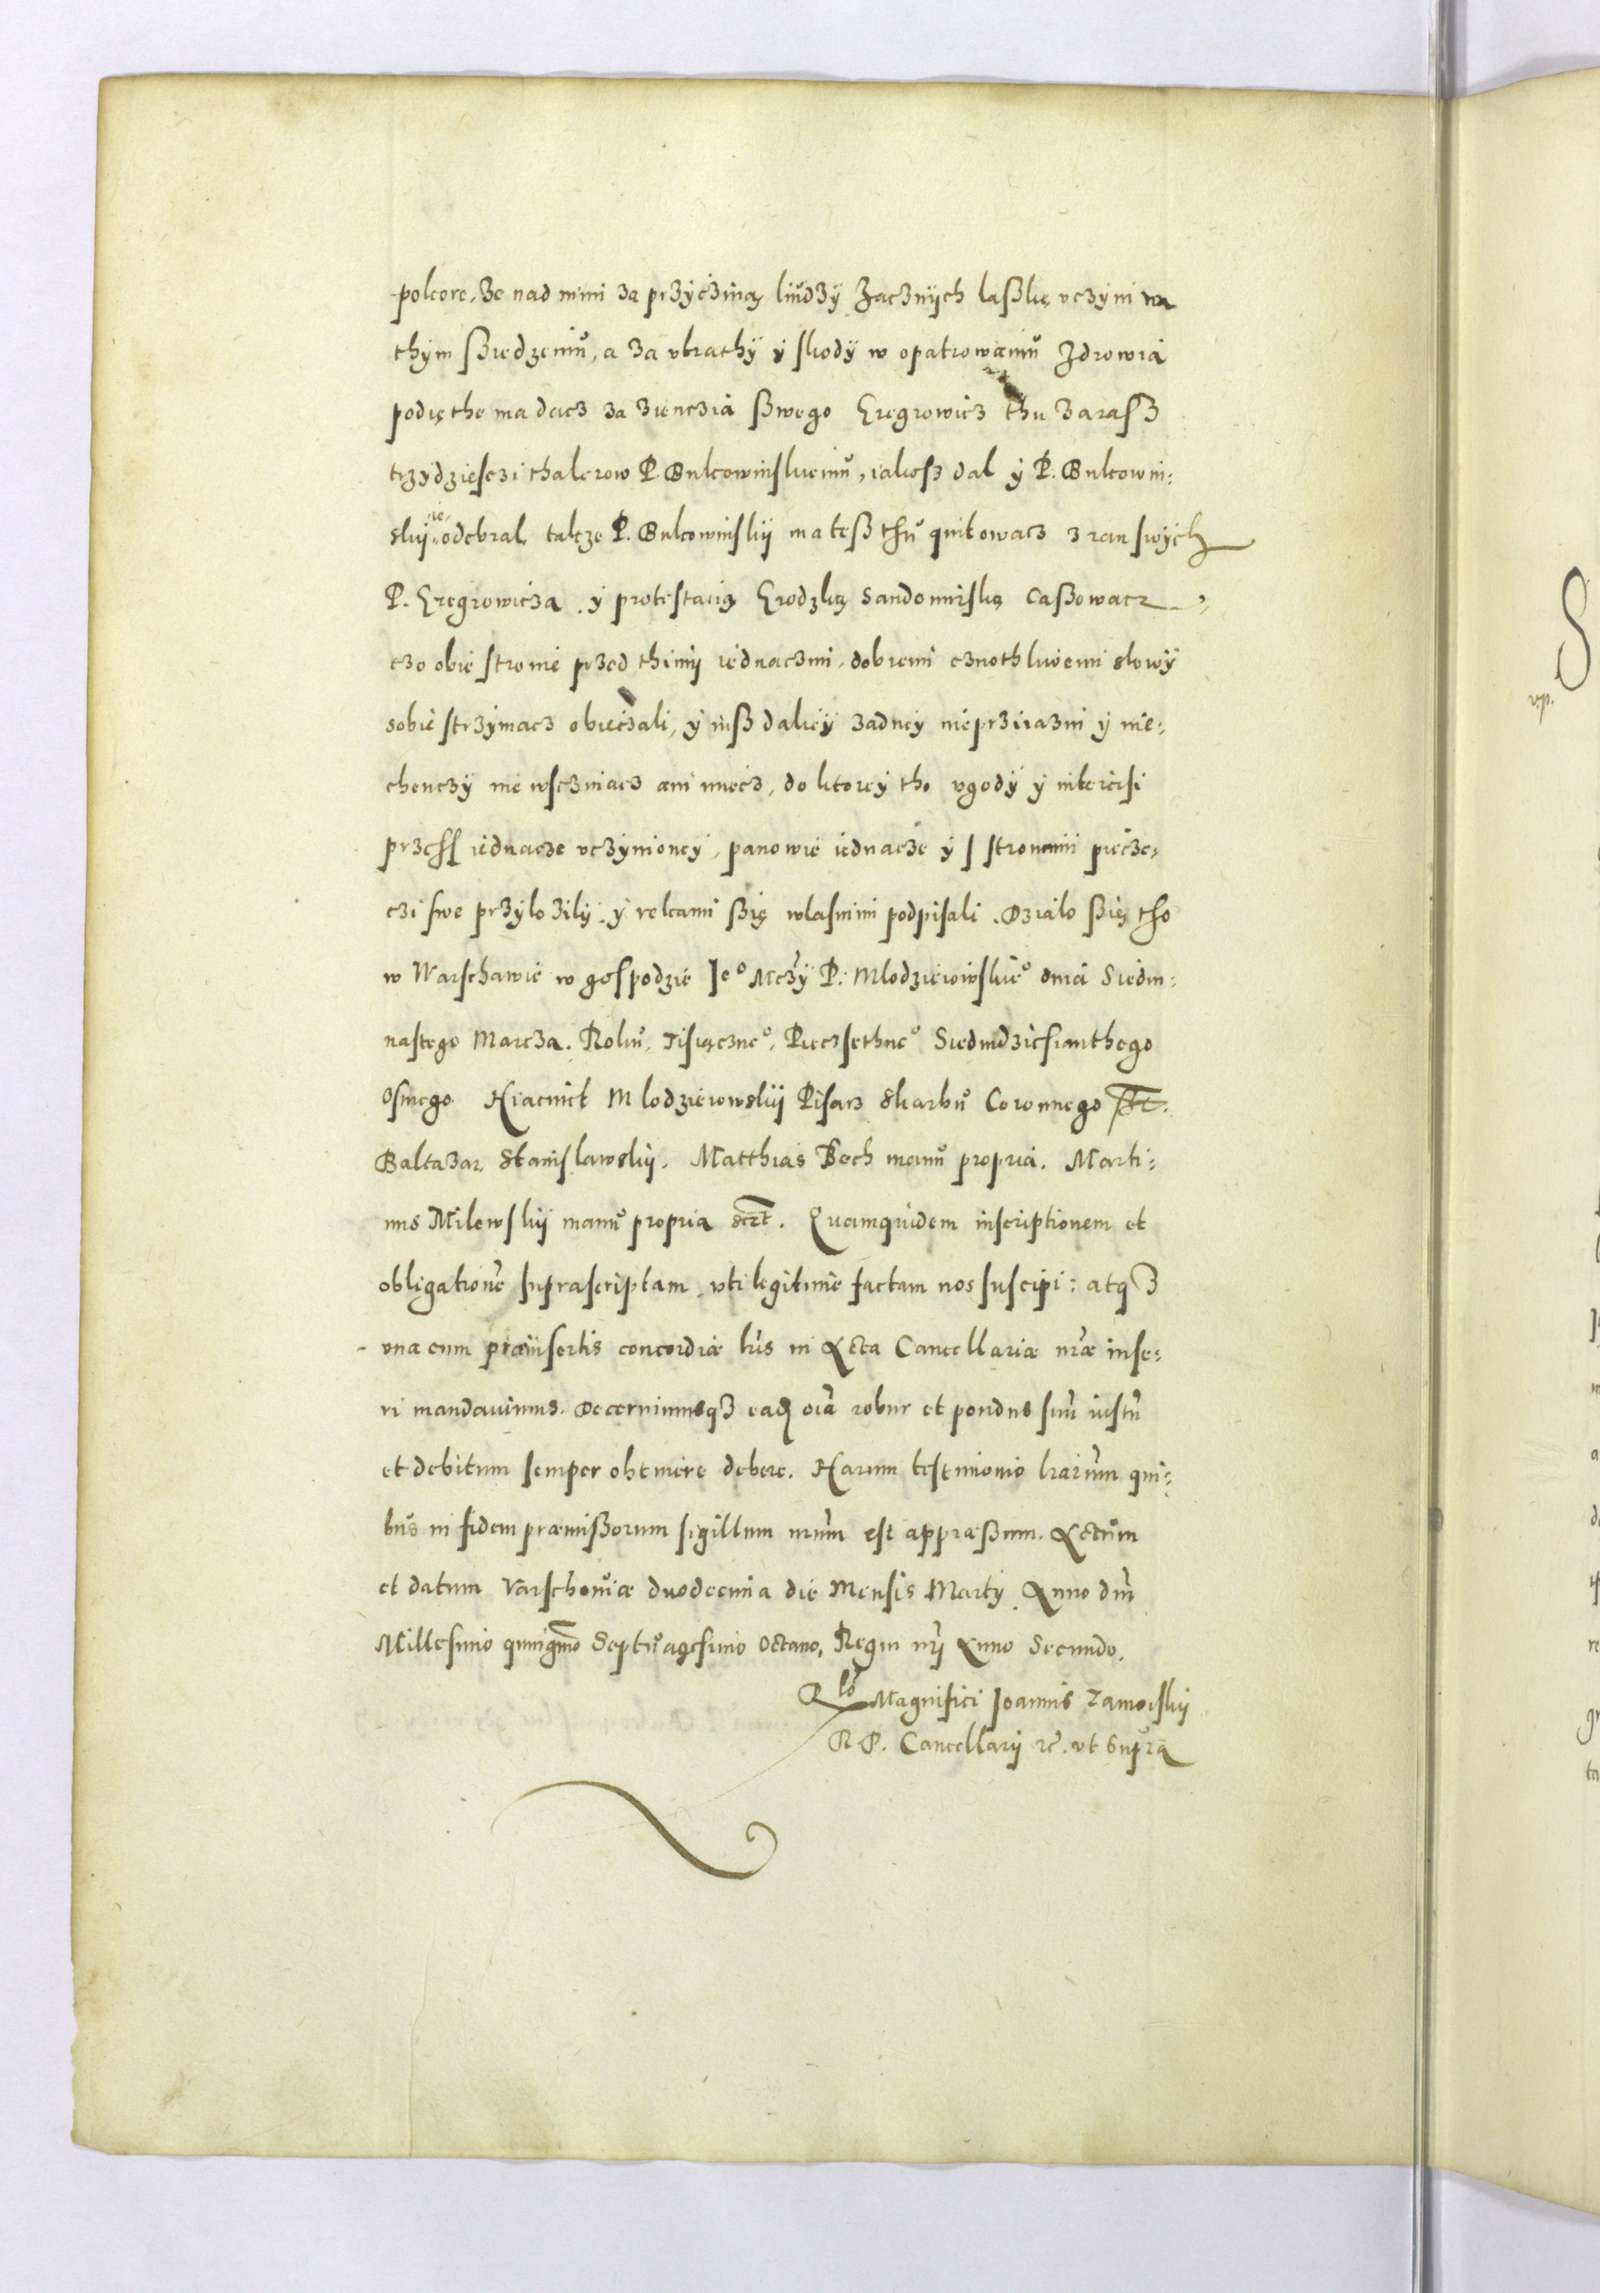 pokore, że nad nimi za przÿczÿną liudzÿ Zacznÿch laßkę vczÿni na
thÿm ßiedzeniu, a za vtrathÿ ÿ skodÿ w opatrowaniu Zdrowia
podięthe ma dacz za zienczia ßwego Gregrowicz thu zarasz
trzydziesczi thalerow P. Bukowinskiemu, iakosz dal ÿ P. Bukowin:
skÿ ie odebral, takze P. Bukowinskÿ ma teß thu quitowacz z ran swÿch
P. Gregrowicza, ÿ protestatią Grodzką Sandomirską Caßowacz
czo obie stronie przed thimÿ iednaczmi, dobremi cznothliwemi slowÿ
sobie strzÿmacz obieczali, ÿ iuß daliéÿ zadneÿ nieprziiazni ÿ nie:
chenczÿ nie wsczniacz ani miecz, do ktoreÿ tho vgodÿ ÿ intercisi
przeß iednacze vczÿnioneÿ, panowie iednacze ÿ s stronami piecze,
czi swe przÿlozilÿ, ÿ rekami ßię wlasnimi podpisali. Dzialo ßię tho
w Warschawie w gospodzie Jeo Mczÿ P. Mlodziewowskieo dnia Siedm:
nastego Marcza. Roku Tisiączneo, Pieczsethneo Siedmdziesianthego
osmego Hiacinct Mlodziewowskÿ Pisarz Skarbu Coronnego sst.
Baltazar Stanislawskÿ. Matthias Bech manu propria. Marti:
nus Milewskÿ manu propria scrt. Quamquidem inscriptionem et
obligationē suprascriptam, vti legitime factam nos suscipi: atqz
vna cum præinsertis concordiæ lris in Acta Cancellariæ nræ inse:
ri mandauimus. Decernimusqz eadē oīa robur et pondus suū iustū
et debitum semper obtinere debere. Harum testimonio lrarum qui:
bus in fidem præmißorum sigillum nrum est appræßum. Actum
et datum Varschouiæ duodecima die Mensis Martÿ Anno dnī
Millesimo quingmo Septuagesimo octauo, Regni nrī Anno Secundo.
Rlo Magnifici Joannis Zamoiskÿ
R. P. Cancellarÿ rc. vt supra
S
vp.